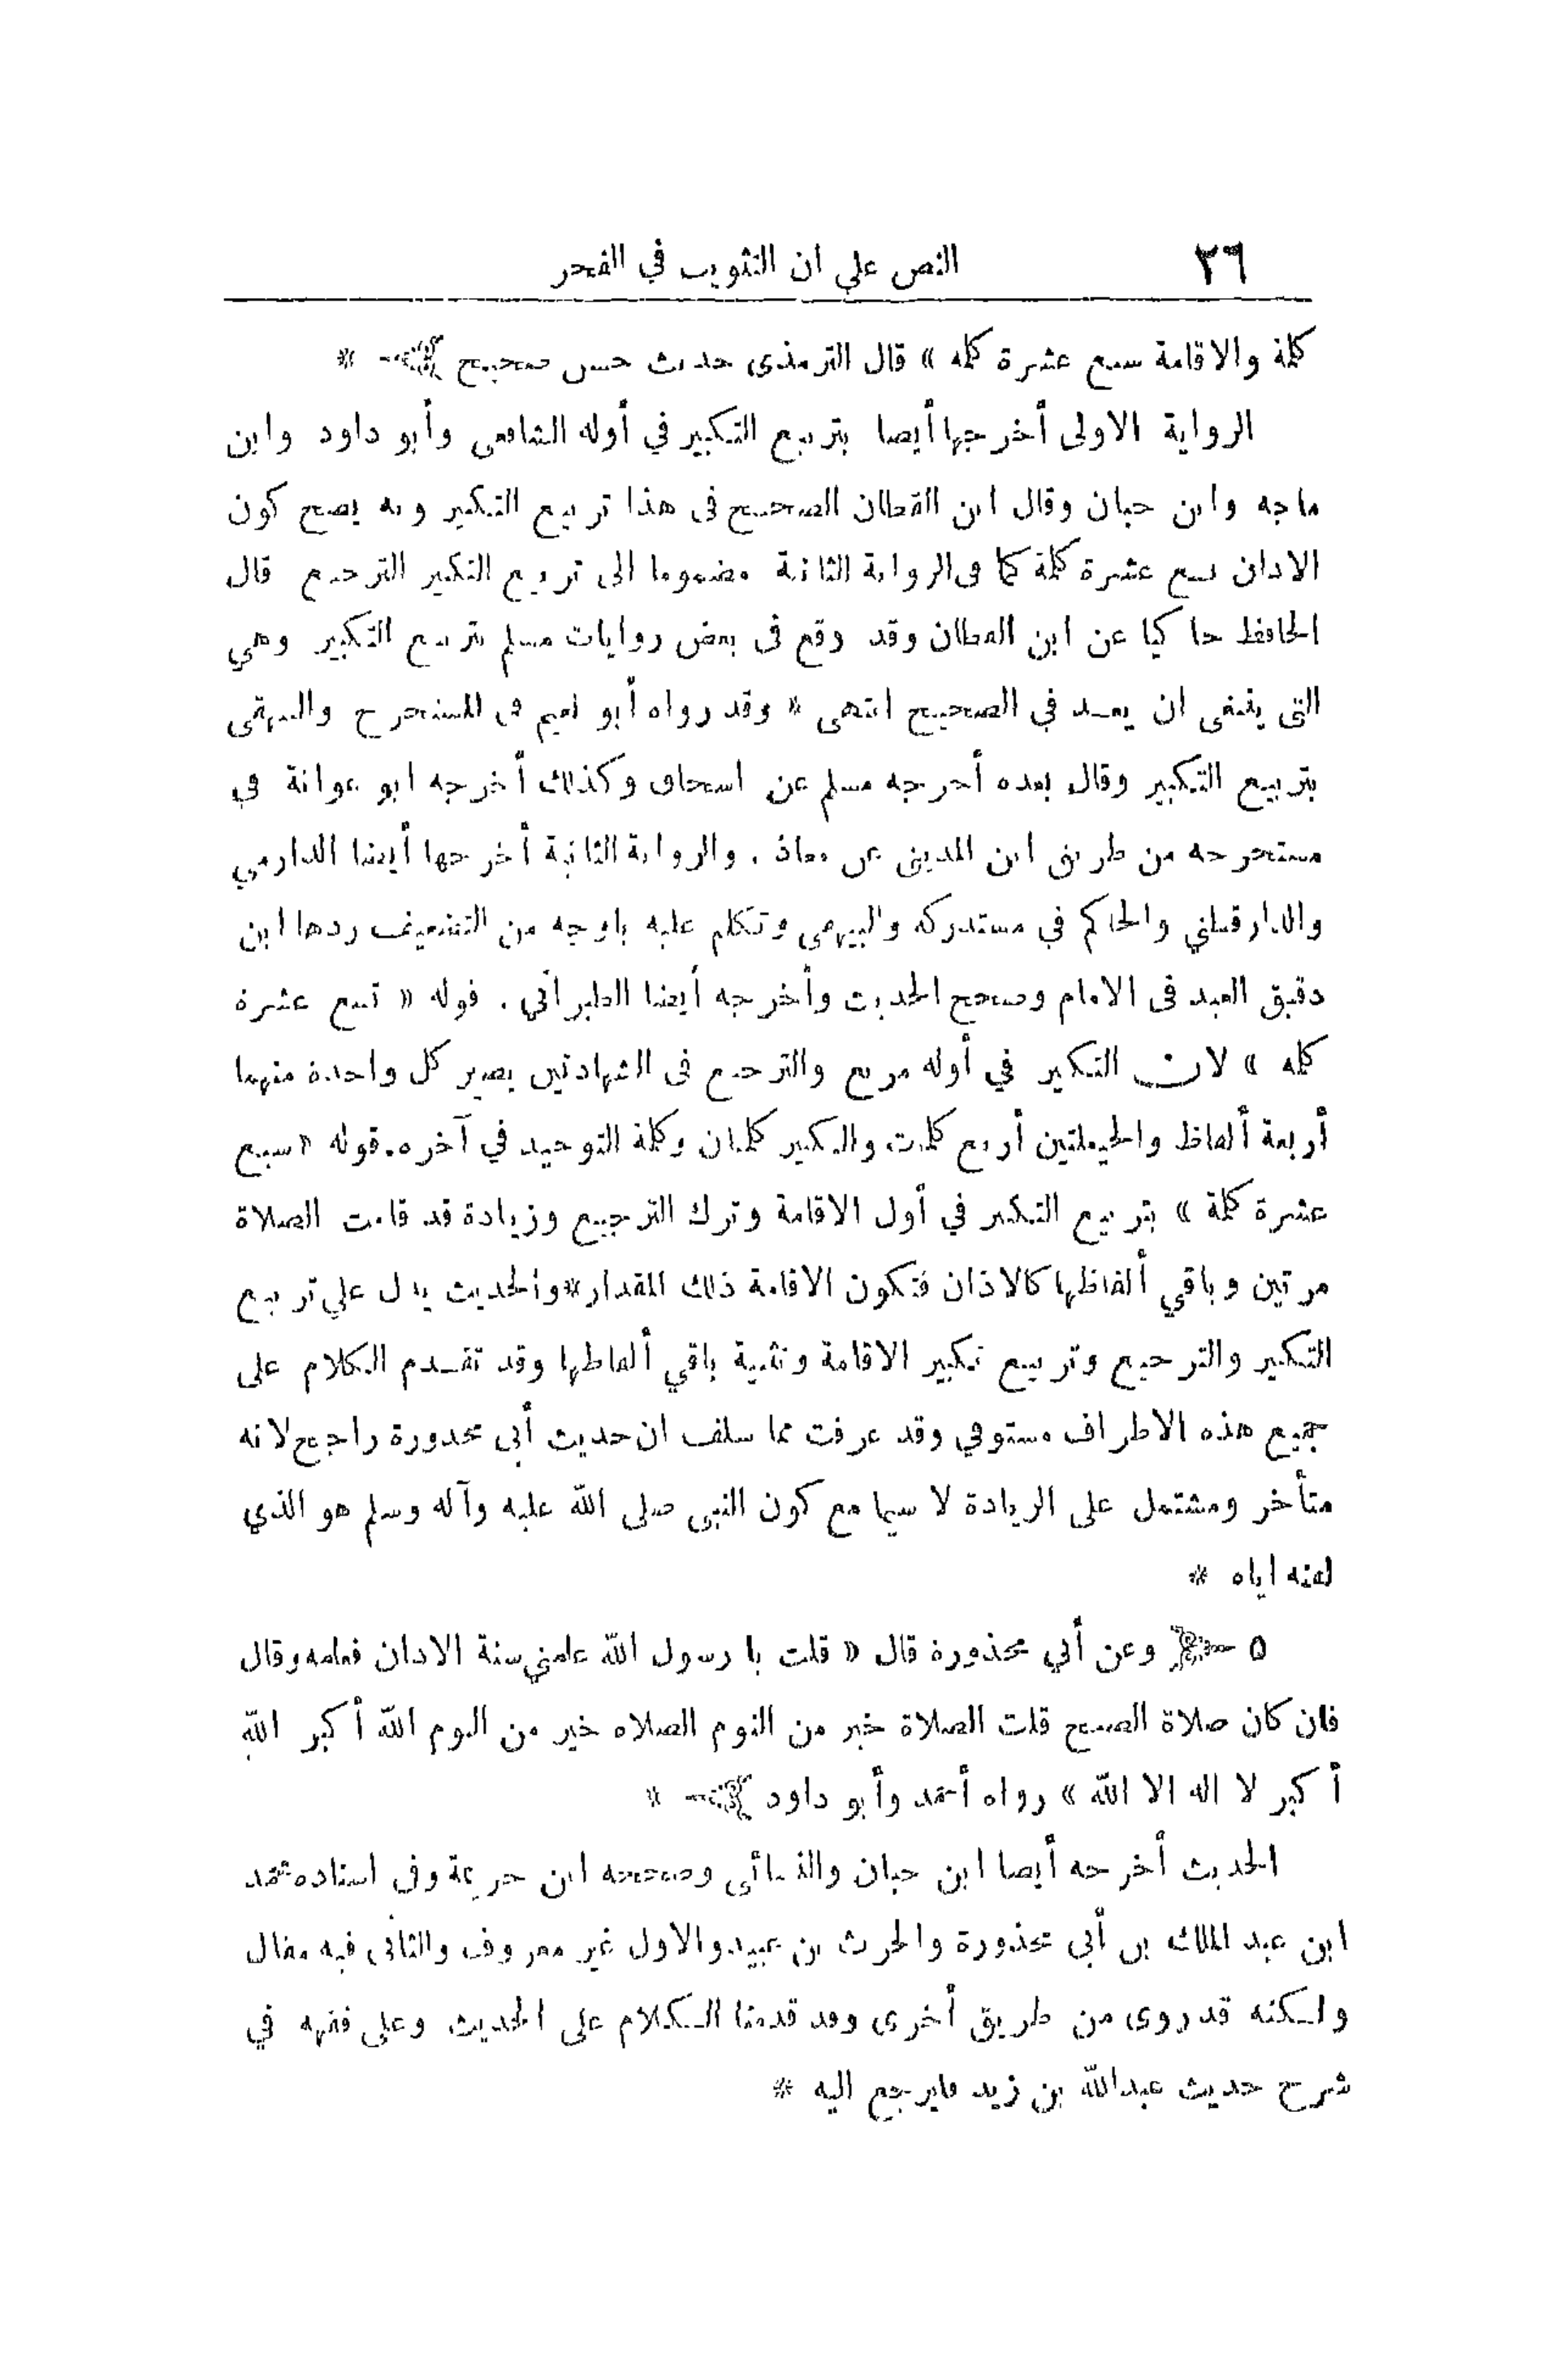 ٢٦ النص علي ان التثويب في الفجر
كلمة والاقامة سبع عشرة كلمة » قال الترمذى حديث حسن صحيح *
الرواية الاولى أخرجها أيضا بتربيع التكبير في أوله الشافعى وأبو داود وابن
ماجه وابن حبان وقال ابن القطان الصحيح فى هذا تربيع التكبير وبه يصح كون
الاذان تسع عشرة كلمة كما فى الرواية الثانية مضموما الى تربيع التكبير الترجيع قال
الحافظ حاكيا عن ابن القطان وقد وقع فى بعض روايات مسلم بتربيع التكبير وهي
التى ينبغى ان يعد في الصحيح انتهى * وقد رواه أبو نعيم في المستخرج والبيهقى
بتربيع التكبير وقال بعده أخرجه مسلم عن اسحاق وكذلك أخرجه ابو عوانة في
مستخرجه من طريق ابن المدينى عن معاذ . والرواية الثانية أخرجها أيضا الدارمي
والدارقطني والحاكم في مستدركه والبيهقى وتكلم عليه باوجه من التضعيف ردها ابن
دقيق العيد فى الامام وصحح الحديث وأخرجه أيضا الطبرانى . قوله « تسع عشرة
كلمة » لان التكبير في أوله مربع والترجيع فى الشهادتين يصير كل واحدة منهما
أربعة ألفاظ والحيعلتين أربع كلمات والتكبير كلمتان وكلمة التوحيد في آخره. قوله «سبع
عشرة كلمة » بتربيع التكبير في أول الاقامة وترك الترجيع وزيادة قد قامت الصلاة
مرتين وباقي ألفاظها كالاذان فتكون الاقامة ذلك المقدار*والحديث يدل علي تربيع
التكبير والترجيع وتربيع تكبير الاقامة وتثنية باقي ألفاظها وقد تقدم الكلام على
جميع هذه الاطراف مستوفي وقد عرفت مما سلف ان حديث أبى محذورة راجح لانه
متأخر ومشتمل على الزيادة لا سيما مع كون النبى صلى الله عليه وآله وسلم هو الذي
لقنه اياه *
٥ وعن أبي محذورة قال « قلت يا رسول الله علمني سنة الاذان فعلمه وقال
فان كان صلاة الصبح قلت الصلاة خير من النوم الصلاة خير من النوم الله أكبر الله
أكبر لا اله الا الله » رواه أحمد وأبو داود *
الحديث أخرجه أيضا ابن حبان والنسائى وصححه ابن خزيمة وفى اسناده محمد
ابن عبد الملك بن أبى محذورة والحرث بن عبيد والاول غير معروف والثانى فيه مقال
ولكنه قد روى من طريق أخرى وقد قدمنا الكلام على الحديث وعلى فقهه في
شرح حديث عبدالله بن زيد فليرجع اليه *